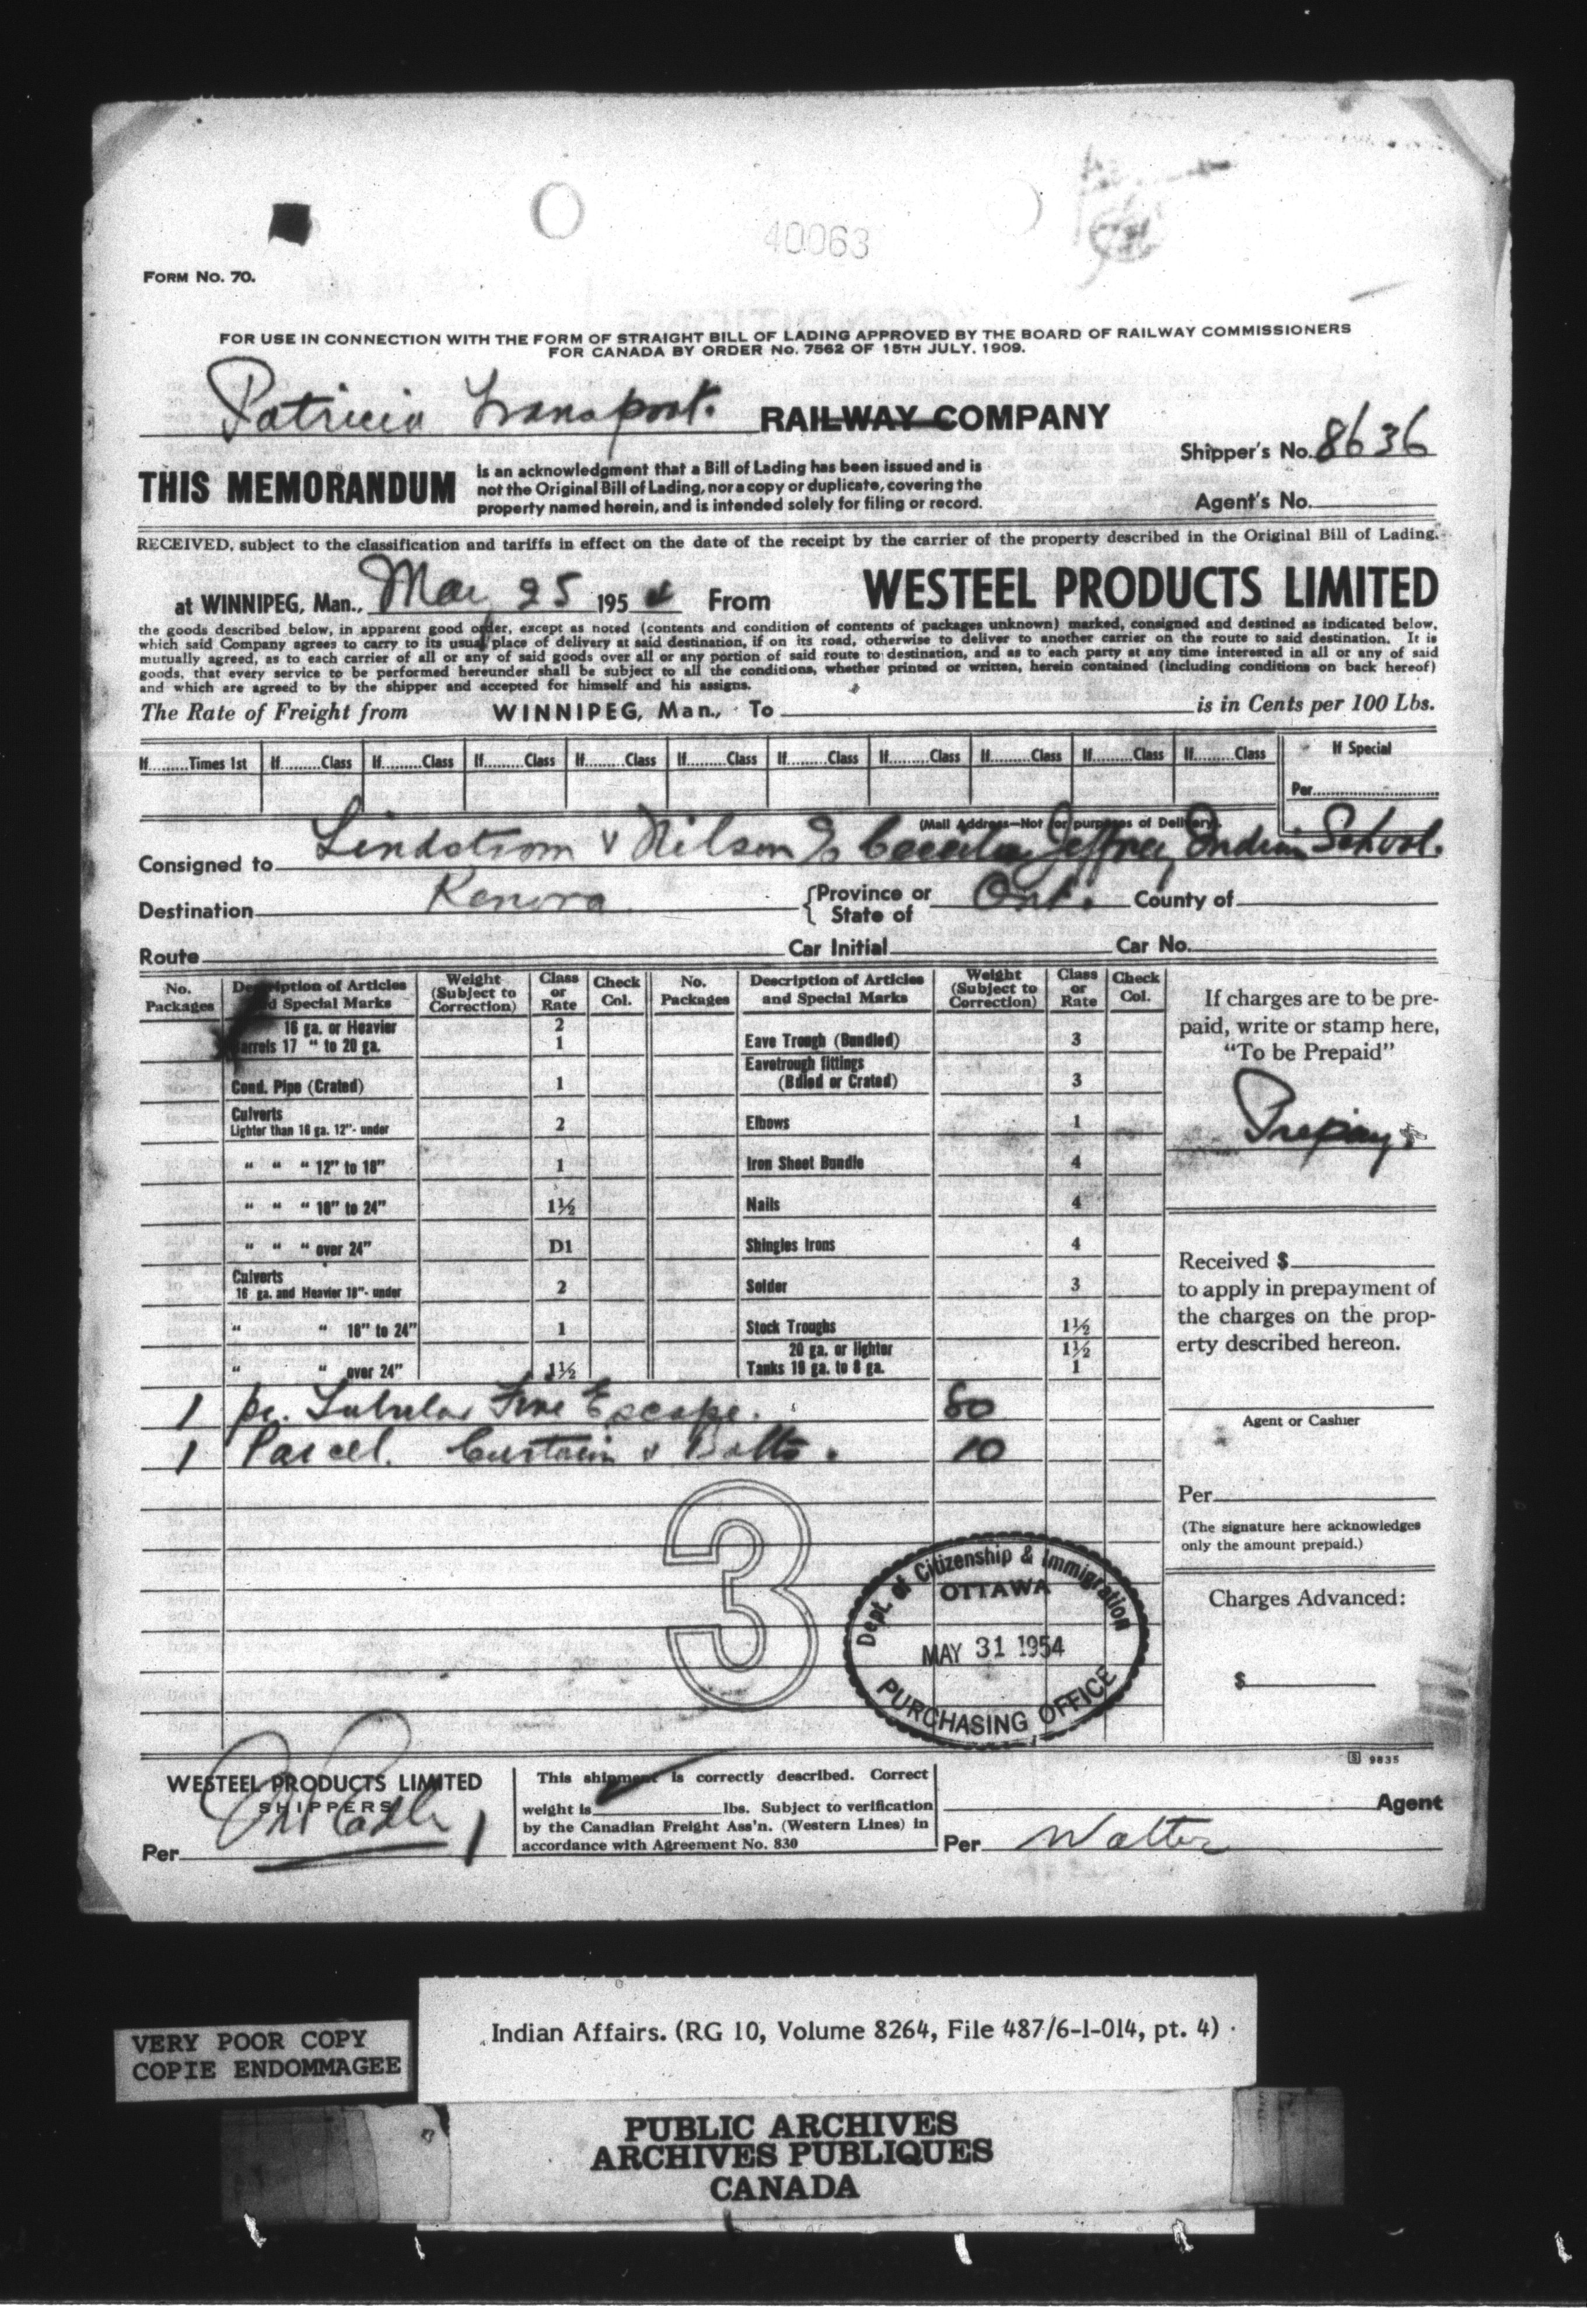 40063
FORM No. 70.
FOR USE IN CONNECTION WITH THE FORM OF STRAIGHT BILL OF LADING APPROVED BY THE BOARD OF RAILWAY COMMISSIONERS
FOR CANADA BY ORDER No. 7562 OF 15TH JULY. 1909.
Patricia Transport. RAILWAY COMPANY
Shipper's No. 8636
THIS MEMORANDUM
is an acknowledgment that a Bill of Lading has been issued and is
not the Original Bill of Lading, nor a copy or duplicate, covering the
property named herein, and is intended solely for filing or record.
Agent's No.
RECEIVED, subject to the classification and tariffs in effect on the date of the receipt by the carrier of the property described in the Original Bill of Lading.
at WINNIPEG, Man., Mar 25 1954 From WESTEEL PRODUCTS LIMITED
the goods described below, in apparent good order, except as noted (contents and condition of contents of packages unknown) marked, consigned and destined as indicated below,
which said Company agrees to carry to its usual place of delivery at said destination, if on its road, otherwise to deliver to another carrier on the route to said destination. It is
mutually agreed, as to each carrier of all or any of said goods over all or any portion of said route to destination, and as to each party at any time interested in all or any of said
goods, that every service to be performed hereunder shall be subject to all the conditions, whether printed or written, herein contained (including conditions on back hereof)
and which are agreed to by the shipper and accepted for himself and his assigns.
The Rate of Freight from WINNIPEG, Man., To is in Cents per 100 Lbs.
If Times 1st If Class If Class If Class If Class If Class If Class If Class If Class If Class If Class If Special
Per
(Mail Address—Not for purposes of Delivery).
Consigned to Lindstrom & Nilson % Cecilia Jeffrey Indian School.
Destination Kenora Province or State of Ont. County of
Route Car Initial Car No.
No. Packages Description of Articles and Special Marks Weight (Subject to Correction) Class or Rate Check Col. No. Packages Description of Articles and Special Marks Weight (Subject to Correction) Class or Rate Check Col.
16 ga. or Heavier 2
17 " to 20 ga. 1 Eave Trough (Bundled) 3
Cond. Pipe (Crated) 1 Eavetrough fittings (Bdled or Crated) 3
Culverts Lighter than 16 ga. 12"- under 2 Elbows 1
" " " 12" to 18" 1 Iron Sheet Bundle 4
" " " 18" to 24" 1½ Nails 4
" " " over 24" D1 Shingles Irons 4
Culverts 16 ga. and Heavier 18"- under 2 Solder 3
" " 18" to 24" 1 Stock Troughs 1½
20 ga. or lighter 1½
" " over 24" 1½ Tanks 19 ga. to 8 ga. 1
1 pc. Tubular Fire Escape. 80
1 Parcel. Curtain & Bolts. 10
If charges are to be pre-
paid, write or stamp here,
"To be Prepaid"
Prepay.
Received $
to apply in prepayment of
the charges on the prop-
erty described hereon.
Agent or Cashier
Per
(The signature here acknowledges
only the amount prepaid.)
Charges Advanced:
$
3
Dept. of Citizenship & Immigration
OTTAWA
MAY 31 1954
PURCHASING OFFICE
S 9835
WESTEEL PRODUCTS LIMITED
SHIPPERS
Per
This shipment is correctly described. Correct
weight is lbs. Subject to verification
by the Canadian Freight Ass'n. (Western Lines) in
accordance with Agreement No. 830
Agent
Per Walter
VERY POOR COPY
COPIE ENDOMMAGEE
Indian Affairs. (RG 10, Volume 8264, File 487/6-1-014, pt. 4)
PUBLIC ARCHIVES
ARCHIVES PUBLIQUES
CANADA